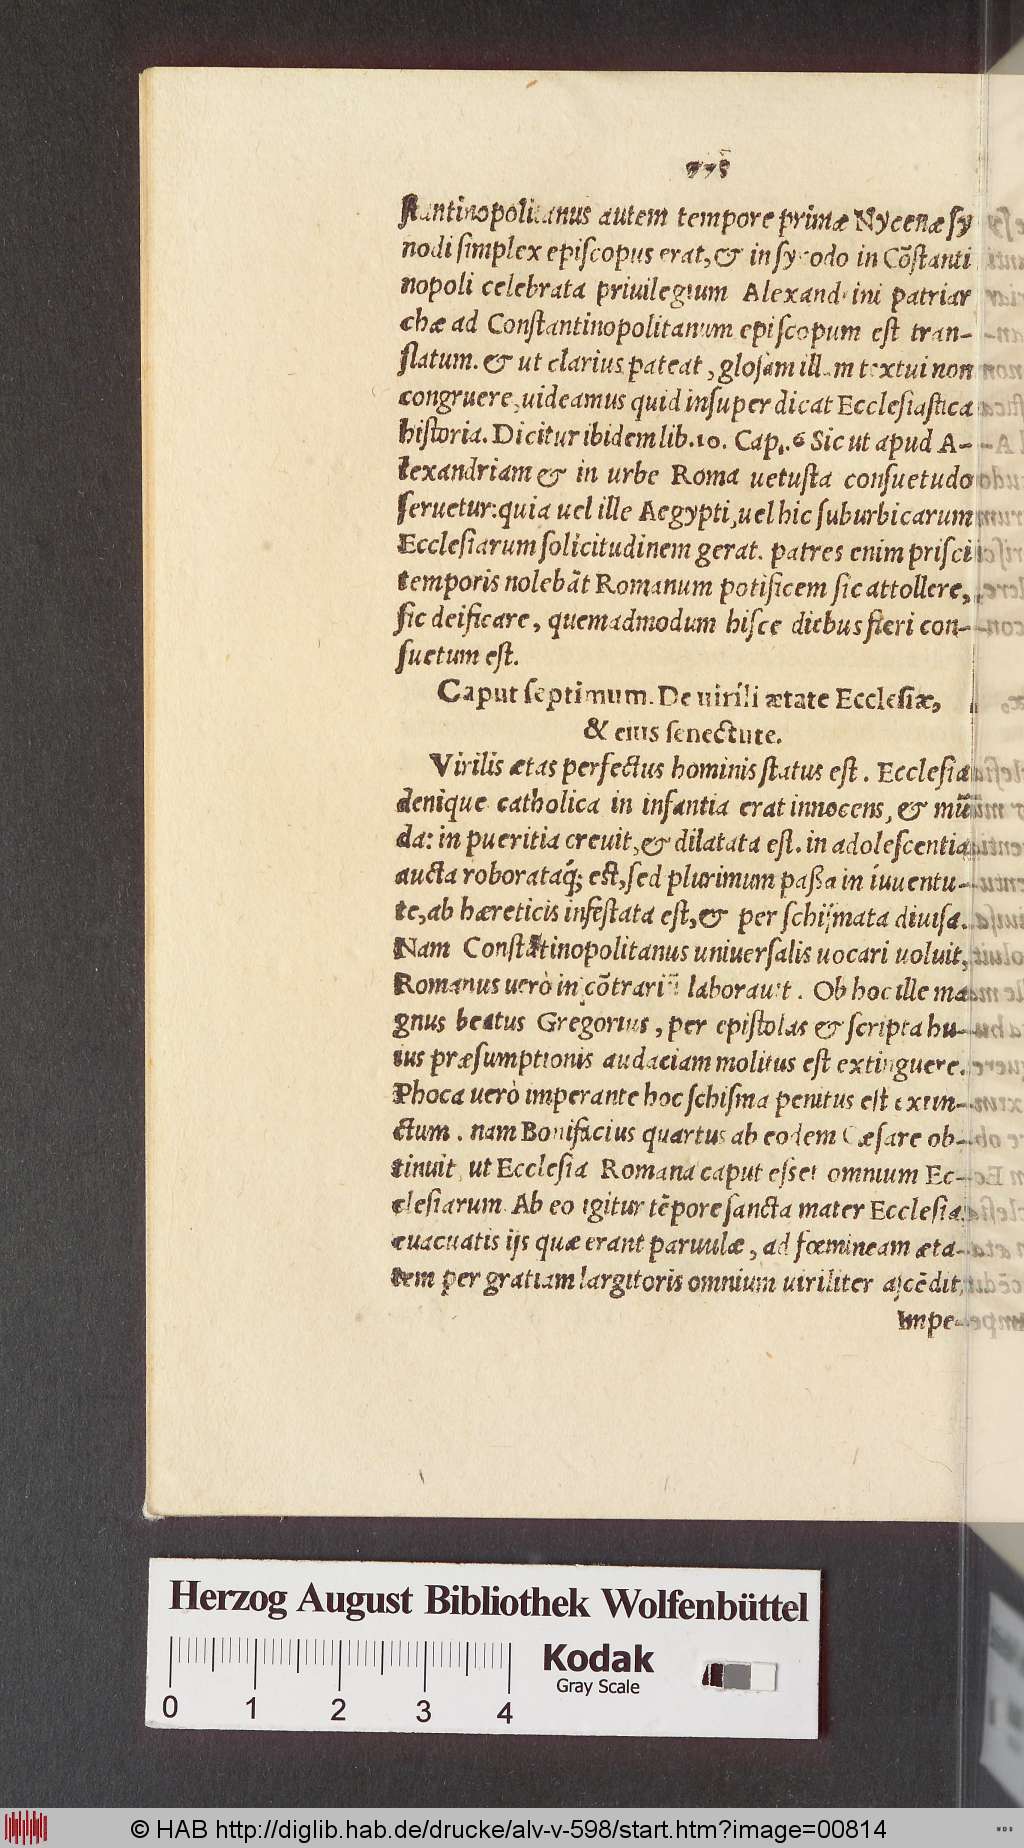 778
stantinopolitanus autem tempore primæ Nycenæ sy
nodi simplex episcopus erat, & in synodo in Cõstanti
nopoli celebrata priuilegium Alexandrini patriar
chæ ad Constantinopolitanum episcopum est tran-
slatum. & ut clarius pateat, glosam illam textui non
congruere, uideamus quid insuper dicat Ecclesiastica
historia. Dicitur ibidem lib. 10. Cap. 6 Sicut apud A-
lexandriam & in urbe Roma uetusta consuetudo
seruetur: quia uel ille Aegypti, uel hic suburbicarum
Ecclesiarum solicitudinem gerat. patres enim prisci
temporis nolebãt Romanum potificem sic attollere,
sic deificare, quemadmodum hisce diebus fieri con-
suetum est.
Caput septimum. De uirili ætate Ecclesiæ,
& eius senectute.
Virilis ætas perfectus hominis status est. Ecclesia
denique catholica in infantia erat innocens, & mũ
da: in pueritia creuit, & dilatata est. in adolescentia
aucta roborataq́; est, sed plurimum passa in iuuentu-
te, ab hæreticis infestata est, & per schismata diuisa.
Nam Constãtinopolitanus uniuersalis uocari uoluit,
Romanus uerò in cõtrariũ laborauit. Ob hoc ille ma
gnus beatus Gregorius, per epistolas & scripta hu-
ius præsumptionis audaciam molitus est extinguere.
Phoca uerò imperante hoc schisma penitus est extin-
ctum. nam Bonifacius quartus ab eodem Cæsare ob-
tinuit, ut Ecclesia Romana caput esset omnium Ec-
clesiarum. Ab eo igitur tẽpore sancta mater Ecclesia,
euacuatis ijs quæ erant paruulæ, ad fœmineam æta-
tem per gratiam largitoris omnium uiriliter ascẽdit,
impe-
Herzog August Bibliothek Wolfenbüttel
Kodak
Gray Scale
0 1 2 3 4
© HAB http://diglib.hab.de/drucke/alv-v-598/start.htm?image=00814